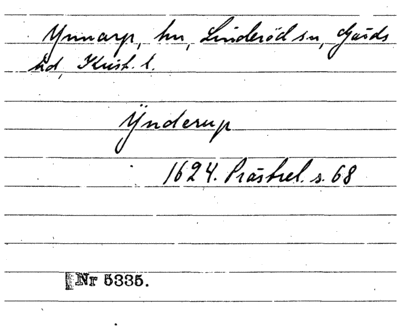 Ynnarp, hn, Linderöd sn, Gärds
hd, Krist. l.
Ÿnderup
1624. Prästrel. s. 68
Nr 5335.